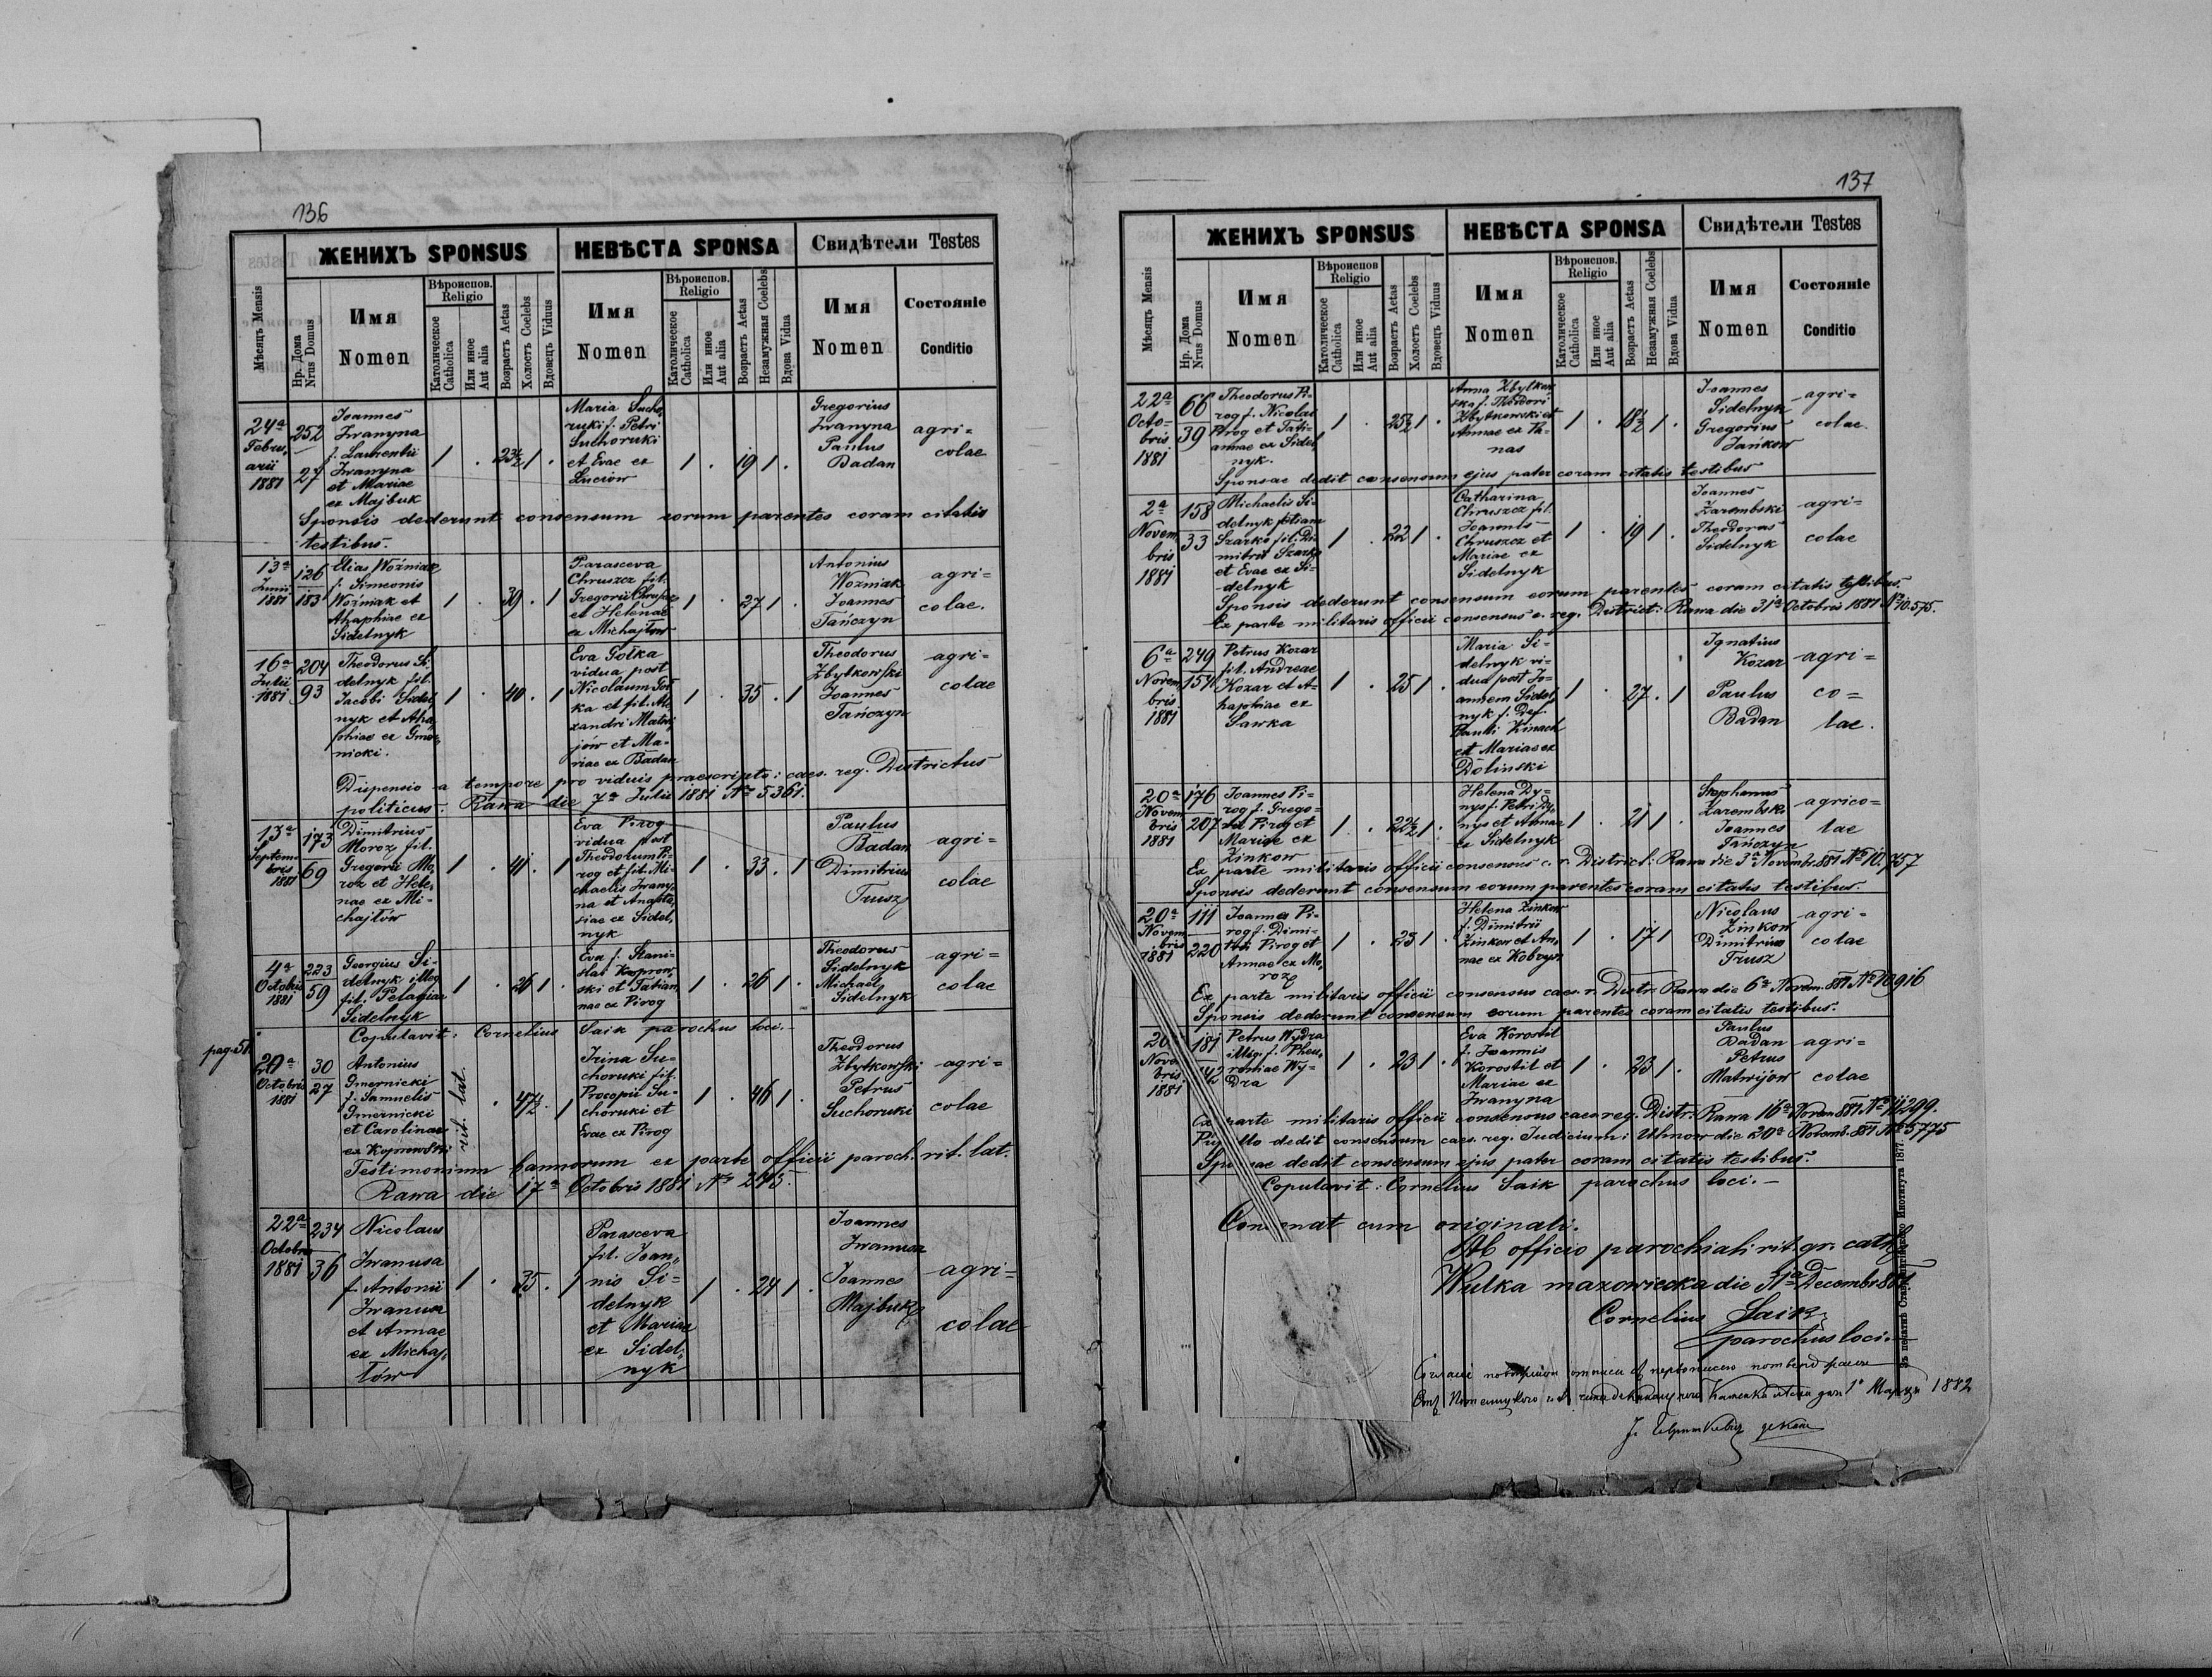 136
ЖЕНИХЪ SPONSUS
НЕВѢСТА SPONSA
Свидѣтели Testes
Мѣсяцъ Mensis
Нр. Дома Nrus Domus
Имя Nomen
Вѣроиспов. Religio
Католическое Catholica
Или иное Aut alia
Возрастъ Aetas
Холостъ Coelebs
Вдовецъ Viduus
Имя Nomen
Вѣроиспов. Religio
Католическое Catholica
Или иное Aut alia
Возрастъ Aetas
Незамужная Coelebs
Вдова Vidua
Имя Nomen
Состояніе Conditio
24a Februarii 1881
252 27
Joannes
Iwanyna
f. Laurentii
Iwanyna
et Mariae
ex Majbuk
1 . 23½ 1 .
Maria Sucho,,
ruki f. Petri
Suchoruki
et Evae ex
1 . 19 1 .
Gregorius
Iwanyna
Paulus
Badan
agri=
colae
Sponsis dederunt consensum eorum parentes coram citatis
testibus.
13a Junii 1881
126 183
Elias Woźniak
f. Simeonis
Woźniak et
Ahaphiae ex
Sidelnyk
1 . 39 . 1
Parasceva
Chruszcz fil.
Gregorii Chruszcz
et Helenae
ex Michajłow
1 . 27 1 .
Antonius
Woźniak
Joannes
Tańczyn
agri=
colae.
16a Julii 1881
204 93
Theodorus Si,,
delnyk fil.
Jacobi Sidel,,
nyk et Aha,,
phiae ex Gmer,,
nicki.
1 . 40 . 1
Eva Gołka
vidua post
Nicolaum Goł,,
ka et fil. Ale,,
xandri Matwi,,
jów et Ma-
riae ex Badan
1 . 35 . 1
Theodorus
Zbytkowski
Joannes
Tańczyn
agri=
colae
Dispensio a tempore pro viduis praescripto: caes. reg. Districtus
politicus: Rawa die 7a Julii 1881 No 5361.
13a Septembris 1881
173 69
Dimitrius
Moroz fil.
Gregorii Mo,,
roz et Hele,,
nae ex Mi-
chajłów
1 . 41 . 1
Eva Pirog
vidua post
Theodorum Pi-
rog et fil. Mi-
chaelis Iwany,,
na et Anasta,,
siae ex Sidel,,
nyk
1 . 33 . 1
Paulus
Badan
Dimitrius
Trusz
agri=
colae
4a Octobris 1881
223 59
Georgius Si-
delnyk illeg.
fil. Pelagiae
Sidelnyk
1 . 26 1 .
Eva f. Stani-
slai Koprow,,
ski et Tatian,,
nae ex Pirog
1 . 26 1 .
Theodorus
Sidelnyk
Michael
Sidelnyk
agri=
colae
Copulavit: Cornelius Saik parochus loci.-
pag. 51.
20a Octobris 1881
30 27
Antonius
Gmernicki
f. Samuelis
Gmernicki
et Carolinae
ex Koprowski
rit. lat.
. 47½ . 1
Irina Su-
choruki fil.
Procopii Su-
choruki et
Evae ex Pirog
1 . 46 1 .
Theodorus
Zbytkowski
Petrus
Suchoruki
agri=
colae
Testimonium bannorum ex parte officii paroch. rit. lat.
Rawa die 17a Octobris 1881 No
22a Octobris 1881
234 36
Nicolaus
Iwanusa
f. Antonii
Iwanusa
et Annae
ex Michaj,,
łów
1 . 35 . 1
Parasceva
fil. Joan,,
nis Si=
delnyk
et Mariae
ex Sidel,,
nyk
1 . 24 1 .
Joannes
Iwanusa
Joannes
Majbuk
agri=
colae
137
ЖЕНИХЪ SPONSUS
НЕВѢСТА SPONSA
Свидѣтели Testes
Мѣсяцъ Mensis
Нр. Дома Nrus Domus
Имя Nomen
Вѣроиспов. Religio
Католическое Catholica
Или иное Aut alia
Возрастъ Aetas
Холостъ Coelebs
Вдовецъ Viduus
Имя Nomen
Вѣроиспов. Religio
Католическое Catholica
Или иное Aut alia
Возрастъ Aetas
Незамужная Coelebs
Вдова Vidua
Имя Nomen
Состояніе Conditio
22a Octobris 1881
66 39
Theodorus Pi-
rog f. Nicolai
Pirog et Tati-
annae ex Sidel,,
nyk.
1 . 25½ 1 .
Anna Zbytkow
ska f. Theodori
Zbytkowski et
Annae ex Pa-
nas
1 . 18½ 1 .
Joannes
Sidelnyk
Gregorius
Jańkow
agri=
colae.
Sponsae dedit consensum ejus pater coram citatis testibus
2a Novembris 1881
158 33
Michaelis Si-
delnyk
Szarko fil. Di-
mitrii Szarko
et Evae ex Si-
delnyk
1 . 22 1 .
Catharina
Chruszcz fil.
Joannis
Chruszcz et
Mariae ex
Sidelnyk
1 . 19 1 .
Joannes
Zarembski
Theodorus
Sidelnyk
agri=
colae
Sponsis dederunt consensum eorum parentes coram citatis testibus.
Ex parte militaris officii consensus c. reg. District: Rawa die 31a Octobris 1881 No 10.575.
6a Novembris 1881
249 154
Petrus Kozar
fil. Andreae
Kozar et A-
haphiae ex
Sawka
1 . 25 1 .
Maria Si-
delnyk vi-
dua post Jo-
annem Sidel,,
nyk f. Def.
Pauli Kinach
et Mariae ex
Dolinski
1 . 27 . 1
Ignatius
Kozar
Paulus
Badan
agri=
co=
lae.
20a Novembris 1881
176 207
Joannes Pi-
rog f. Grego=
rii Pirog et
Mariae ex
Zinkow
1 . 22½ 1 .
Helena Dy-
nys f. Petri Dy,,
nys et Annae
ex Sidelnyk
1 . 21 1 .
Stephanus
Zarembski
Joannes
Tańczyn
agrico=
lae
Ex parte militaris officii consensus c. r. District: Rawa die 3a Novembr. 881 No 10.757
Sponsis dederunt consensum eorum parentes coram citatis testibus.
20a Novembris 1881
111 220
Joannes Pi-
rog f. Dimi-
trii Pirog et
Annae ex Mo,,
roz
1 . 23 1 .
Helena Zinkow
f. Dimitrii
Zinkow et An,,
nae ex Kobryn
1 . 17 1
Nicolaus
Zinkow
Dimitrius
Trusz
agri=
colae
Ex parte militaris officii consensus caes. r. Distr: Rawa die 6a Novem. 881 No 10916
Sponsis dederunt consensum eorum parentes coram citatis testibus.
20 Novebris 1881
181
Petrus Wydra
illeg. f. Pheu,,
roniae Wy-
dra
1 . 23 1 .
Eva Korostil
f. Joannis
Korostil et
Mariae ex
Iwanyna
1 . 23 1 .
Paulus
Badan
Petrus
Matwijow
agri=
colae
Ex parte militaris officii consensus caes. reg. Distr: Rawa 16a Novem 881 No 11299.
dedit consensum caes. reg. Judicium: Uhnow die 20a Novemb. 881 No 5775
Sponsae dedit consensum ejus pater coram citatis testibus.
Copulavit: Cornelius Saik parochus loci.-
Consonat cum originali.
Ab officio parochiali rit. gr. cath.
Wulka mazowiecka die 31a Decembr. 881
Cornelius Saik
parochus loci.
1 Марца 1882